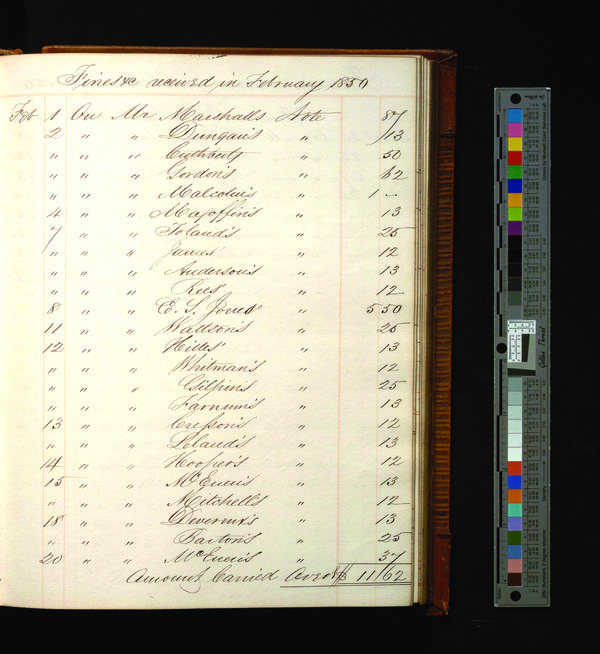 Fines &c received in February 1850
Feb 1 On Mr Marshalls Note 87
2 " " Dungan's " 13
" " " Cuthberts " 50
" " " Gordon's " 62
" " " Malcolm's " 1 -
4 " " Magoffin's " 13
7 " " Toland's " 25
" " " James' " 12
" " " Anderson's " 13
" " " Rees' " 12
8 " " E. S. Jones' " 5 50
11 " " Wattson's " 25
12 " " Hilles' " 13
" " " Whitman's " 12
" " " Gilpin's " 25
" " " Farnum's " 13
13 " " Cresson's " 12
" " " Leland's " 13
14 " " Hooper's " 12
15 " " McEuen's " 13
" " " Mitchell's " 12
18 " " Devereux's " 13
" " " " 25
20 " " McEuen's " 37
Amount Carried Over $ 11 62